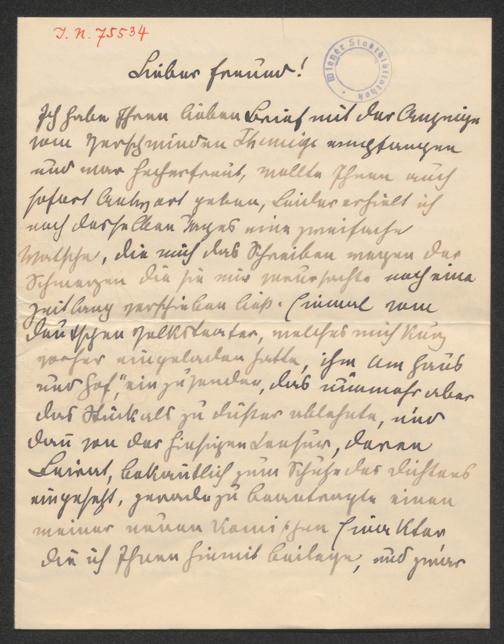 I. N. 75534
Wiener Stadtbibliothek
Lieber Freund!
Ich habe Ihren lieben Brief mit der Anzeige
vom Verschwinden empfangen
und war hocherfreut, wollte Ihnen auch
sofort Antwort geben, leider erhielt ich
noch desselben Tages eine zweifache
Watsche, die mich das Schreiben wegen der
Schmerzen die sie mir verursachte noch eine
zeitlang verschieben ließ. Einmal vom
deutschen Volkstheater, welches mich kurz
vorher eingeladen hatte, ihm "Um Haus
und Hof," einzusenden, das nunmehr aber
das Stück als zu düster ablehnte, und
dann von der hiesigen Censur, deren
Beirat, bekanntlich zum Schutze des Dichters
eingesetzt, geradezu beantragte einen
meiner neuen Komischen Einakter
die ich Ihnen hiemit beilege, und zwar